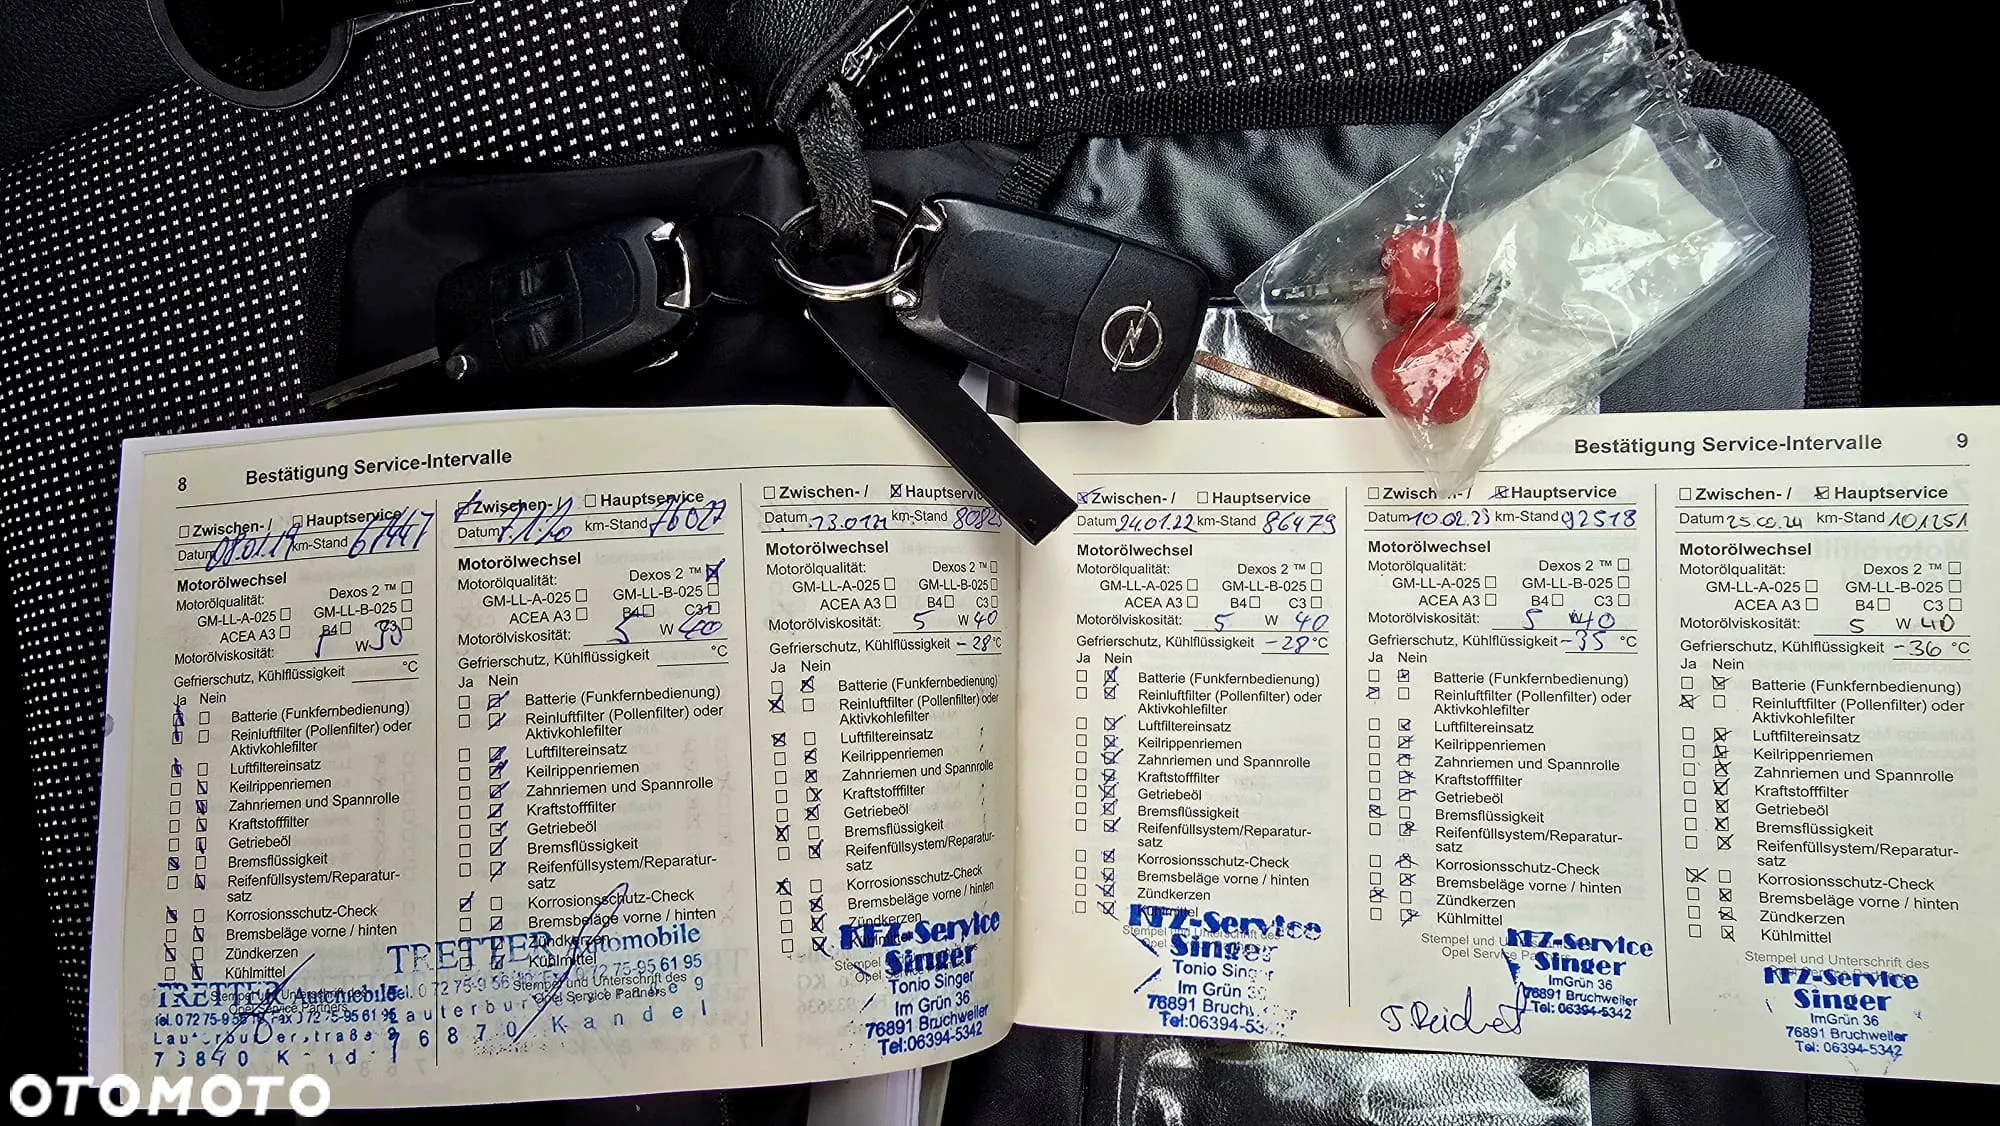 8 Bestätigung Service-Intervalle
Zwischen- / Hauptservice
Datum 08.01.19 km-Stand 67447
Motorölwechsel
Motorölqualität: Dexos 2 ™
GM-LL-A-025 GM-LL-B-025
ACEA A3 B4 C3
Motorölviskosität: W 30
Gefrierschutz, Kühlflüssigkeit °C
Ja Nein
Batterie (Funkfernbedienung)
Reinluftfilter (Pollenfilter) oder
Aktivkohlefilter
Luftfiltereinsatz
Keilrippenriemen
Zahnriemen und Spannrolle
Kraftstofffilter
Getriebeöl
Bremsflüssigkeit
Reifenfüllsystem/Reparatur-
satz
Korrosionsschutz-Check
Bremsbeläge vorne / hinten
Zündkerzen
Kühlmittel
Stempel und Unterschrift des
Opel Service Partners
TRETTER Automobile
Zwischen- / Hauptservice
Datum km-Stand 76027
Motorölwechsel
Motorölqualität: Dexos 2 ™
GM-LL-A-025 GM-LL-B-025
ACEA A3 B4 C3
Motorölviskosität: 5 W 40
Gefrierschutz, Kühlflüssigkeit °C
Ja Nein
Batterie (Funkfernbedienung)
Reinluftfilter (Pollenfilter) oder
Aktivkohlefilter
Luftfiltereinsatz
Keilrippenriemen
Zahnriemen und Spannrolle
Kraftstofffilter
Getriebeöl
Bremsflüssigkeit
Reifenfüllsystem/Reparatur-
satz
Korrosionsschutz-Check
Bremsbeläge vorne / hinten
Zündkerzen
Kühlmittel
Stempel und Unterschrift des
Opel Service Partners
TRETTER Automobile
Tel. 0 72 75-9 56 Fax 0 72 75-95 61 95
Lauterburger Straße 9
76870 Kandel
Zwischen- / Hauptservice
Datum km-Stand
Motorölwechsel
Motorölqualität: Dexos 2 ™
GM-LL-A-025 GM-LL-B-025
ACEA A3 B4 C3
Motorölviskosität: 5 W 40
Gefrierschutz, Kühlflüssigkeit -28 °C
Ja Nein
Batterie (Funkfernbedienung)
Reinluftfilter (Pollenfilter) oder
Aktivkohlefilter
Luftfiltereinsatz
Keilrippenriemen
Zahnriemen und Spannrolle
Kraftstofffilter
Getriebeöl
Bremsflüssigkeit
Reifenfüllsystem/Reparatur-
satz
Korrosionsschutz-Check
Bremsbeläge vorne / hinten
Zündkerzen
Kühlmittel
KFZ-Service
Singer
Tonio Singer
Im Grün 36
76891 Bruchweiler
Tel:06394-5342
Bestätigung Service-Intervalle 9
Zwischen- / Hauptservice
Datum 24.01.22 km-Stand 86479
Motorölwechsel
Motorölqualität: Dexos 2 ™
GM-LL-A-025 GM-LL-B-025
ACEA A3 B4 C3
Motorölviskosität: 5 W 40
Gefrierschutz, Kühlflüssigkeit -28 °C
Ja Nein
Batterie (Funkfernbedienung)
Reinluftfilter (Pollenfilter) oder
Aktivkohlefilter
Luftfiltereinsatz
Keilrippenriemen
Zahnriemen und Spannrolle
Kraftstofffilter
Getriebeöl
Bremsflüssigkeit
Reifenfüllsystem/Reparatur-
satz
Korrosionsschutz-Check
Bremsbeläge vorne / hinten
Zündkerzen
Kühlmittel
Stempel und Unterschrift des
KFZ-Service
Singer
Tonio Singer
Im Grün
76891 Bruchw
Tel:06394-53
Zwischen- / Hauptservice
Datum 10.02.23 km-Stand 92518
Motorölwechsel
Motorölqualität: Dexos 2 ™
GM-LL-A-025 GM-LL-B-025
ACEA A3 B4 C3
Motorölviskosität: 5 W 40
Gefrierschutz, Kühlflüssigkeit -35 °C
Ja Nein
Batterie (Funkfernbedienung)
Reinluftfilter (Pollenfilter) oder
Aktivkohlefilter
Luftfiltereinsatz
Keilrippenriemen
Zahnriemen und Spannrolle
Kraftstofffilter
Getriebeöl
Bremsflüssigkeit
Reifenfüllsystem/Reparatur-
satz
Korrosionsschutz-Check
Bremsbeläge vorne / hinten
Zündkerzen
Kühlmittel
Stempel und
Opel Service Partners
KFZ-Service
Singer
Im Grün 36
76891 Bruchweiler
Tel: 06394-5342
Zwischen- / Hauptservice
Datum km-Stand 101251
Motorölwechsel
Motorölqualität: Dexos 2 ™
GM-LL-A-025 GM-LL-B-025
ACEA A3 B4 C3
Motorölviskosität: 5 W 40
Gefrierschutz, Kühlflüssigkeit -36 °C
Ja Nein
Batterie (Funkfernbedienung)
Reinluftfilter (Pollenfilter) oder
Aktivkohlefilter
Luftfiltereinsatz
Keilrippenriemen
Zahnriemen und Spannrolle
Kraftstofffilter
Getriebeöl
Bremsflüssigkeit
Reifenfüllsystem/Reparatur-
satz
Korrosionsschutz-Check
Bremsbeläge vorne / hinten
Zündkerzen
Kühlmittel
Stempel und Unterschrift des
KFZ-Service
Singer
Im Grün 36
76891 Bruchweiler
Tel: 06394-5342
OTOMOTO